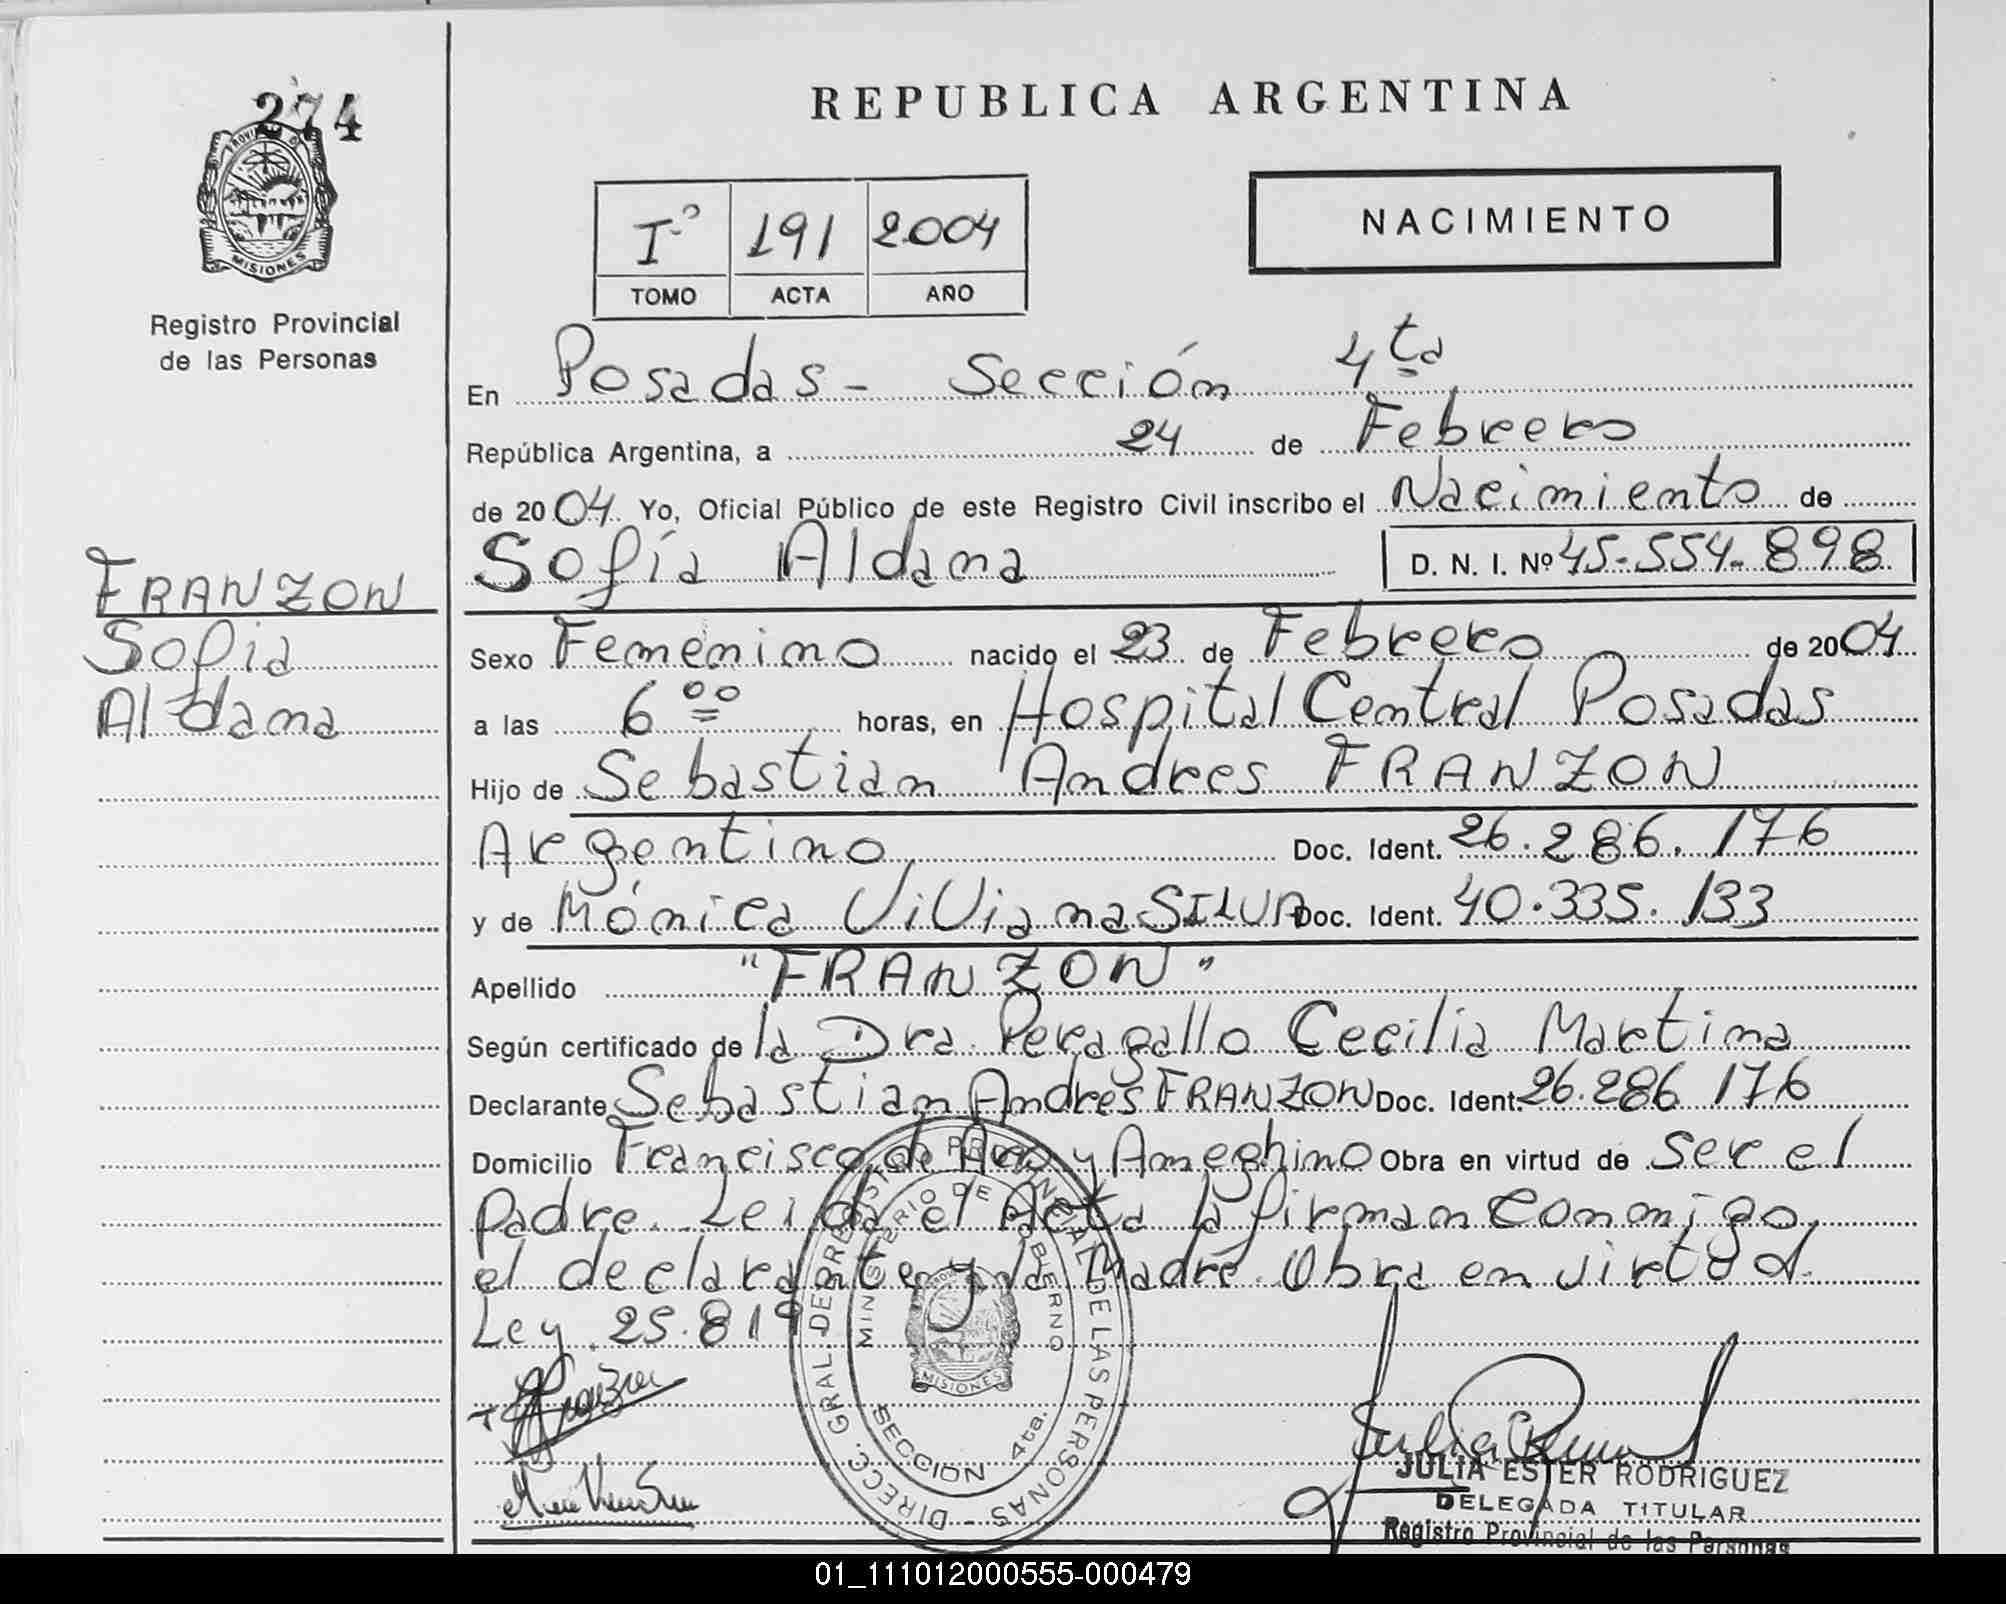 274
PROVINCIA DE
MISIONES
Registro Provincial
de las Personas
FRANZON
Sofia
Aldana
REPUBLICA ARGENTINA
Iº 191 2004
TOMO ACTA AÑO
NACIMIENTO
En Posadas - Sección 4ta
República Argentina, a 24 de Febrero
de 2004. Yo, Oficial Público de este Registro Civil inscribo el Nacimiento de
Sofía Aldana D. N. I. Nº 45.554.898
Sexo Femenino nacido el 23 de Febrero de 2004
a las 6 00 horas, en Hospital Central Posadas
Hijo de Sebastian Andres FRANZON
Argentino Doc. Ident. 26.286.176
y de Mónica Viviana SILVA Doc. Ident. 40.335.133
Apellido "FRANZON"
Según certificado de la Dra. Peragallo Cecilia Martina
Declarante Sebastian Andres FRANZON Doc. Ident. 26.286 176
Domicilio Francisco de Aro y Ameghino Obra en virtud de Ser el
Padre. Leida el Acta la firman conmigo,
el declarante y la Madre. Obra en virtud
Ley 25.819
DIRECC. GRAL DE REGISTRO PROVINCIAL DE LAS PERSONAS -
MINISTERIO DE GOBIERNO
MISIONES
SECCION 4ta.
JULIA ESTER RODRIGUEZ
DELEGADA TITULAR
Registro Provincial de las Personas
01_111012000555-000479